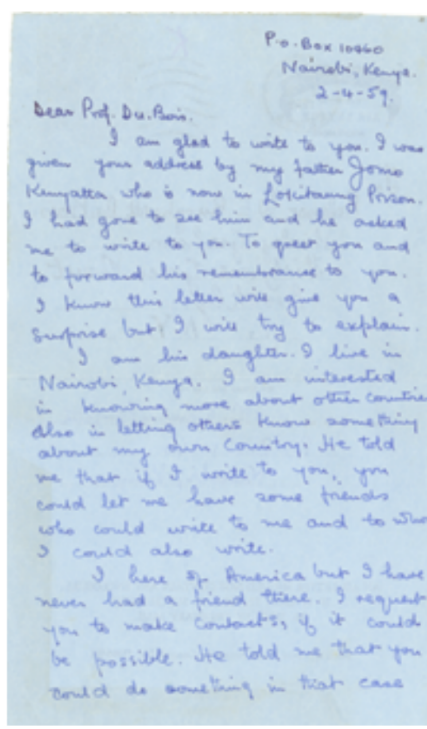 P.O. Box 10460
Nairobi, Kenya.
2-4-59.
Dear Prof. Du. Bois.
I am glad to write to you. I was
given your address by my father Jomo
Kenyatta who is now in Lokitaung Prison.
I had gone to see him and he asked
me to write to you. To greet you and
to forward his remembrance to you.
I know this letter will give you a
surprise but I will try to explain.
I am his daughter. I live in
Nairobi, Kenya. I am interested
in knowing more about other countrie
also in letting others know something
about my own country. He told
me that if I write to you, you
could let me have some friends
who could write to me and to who
I could also write.
I here of America but I have
never had a friend there. I request
you to make contacts, if it could
be possible. He told me that you
could do something in that case